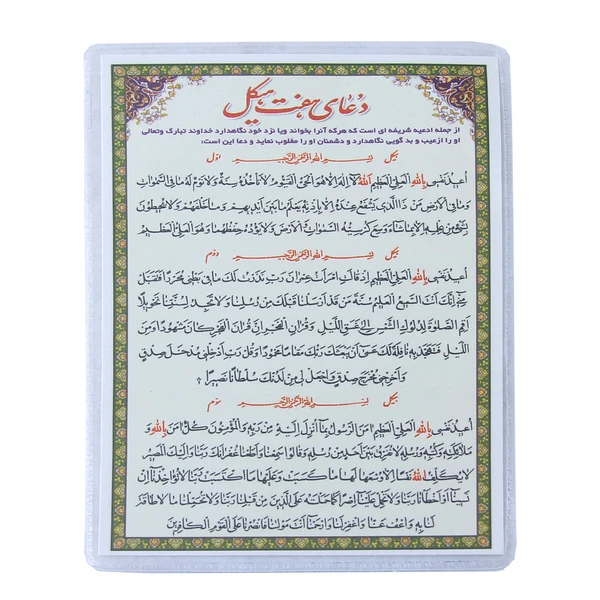 دعای هفت هیکل
از جمله ادعیه شریفه ای است که هرکه آنرا بخواند ویا نزد خود نگاهدارد خداوند تبارک وتعالی
او را ازعیب و بد گویی نگاهدارد و دشمنان او را مغلوب نماید و دعا این است:
هیکل بسم الله الرحمن الرحیم اول
اعیذ نفسی بالله العلی العظیم الله لا اله الا هو الحی القیوم لا تأخذه سنة ولا نوم له ما فی السموات
وما فی الارض من ذا الذی یشفع عنده الا باذنه یعلم ما بین ایدیهم وما خلفهم ولا یحیطون
بشیء من علمه الا بما شاء وسع کرسیه السموات والارض ولا یؤده حفظهما وهو العلی العظیم
هیکل بسم الله الرحمن الرحیم دوم
اعیذ نفسی بالله العلی العظیم اذ قالت امرأت عمران رب انی نذرت لک ما فی بطنی محررا فتقبل
منی انک انت السمیع العلیم سنة من قد ارسلنا قبلک من رسلنا ولا تجد لسنتنا تحویلا
اقم الصلوة لدلوک الشمس الی غسق اللیل وقران الفجر ان قران الفجر کان مشهودا ومن
اللیل فتهجد به نافلة لک عسی ان یبعثک ربک مقاما محمودا وقل رب ادخلنی مدخل صدق
واخرجنی مخرج صدق واجعل لی من لدنک سلطانا نصیرا
هیکل بسم الله الرحمن الرحیم سوم
اعیذ نفسی بالله العلی العظیم امن الرسول بما انزل الیه من ربه والمؤمنون کل امن بالله و
ملائکته وکتبه ورسله لا نفرق بین احد من رسله وقالوا سمعنا واطعنا غفرانک ربنا والیک المصیر
لا یکلف الله نفسا الا وسعها لها ما کسبت وعلیها ما اکتسبت ربنا لا تؤاخذنا ان
نسینا او اخطأنا ربنا ولا تحمل علینا اصرا کما حملته علی الذین من قبلنا ربنا ولا تحملنا ما لا طاقة
لنا به واعف عنا واغفر لنا وارحمنا انت مولینا فانصرنا علی القوم الکافرین